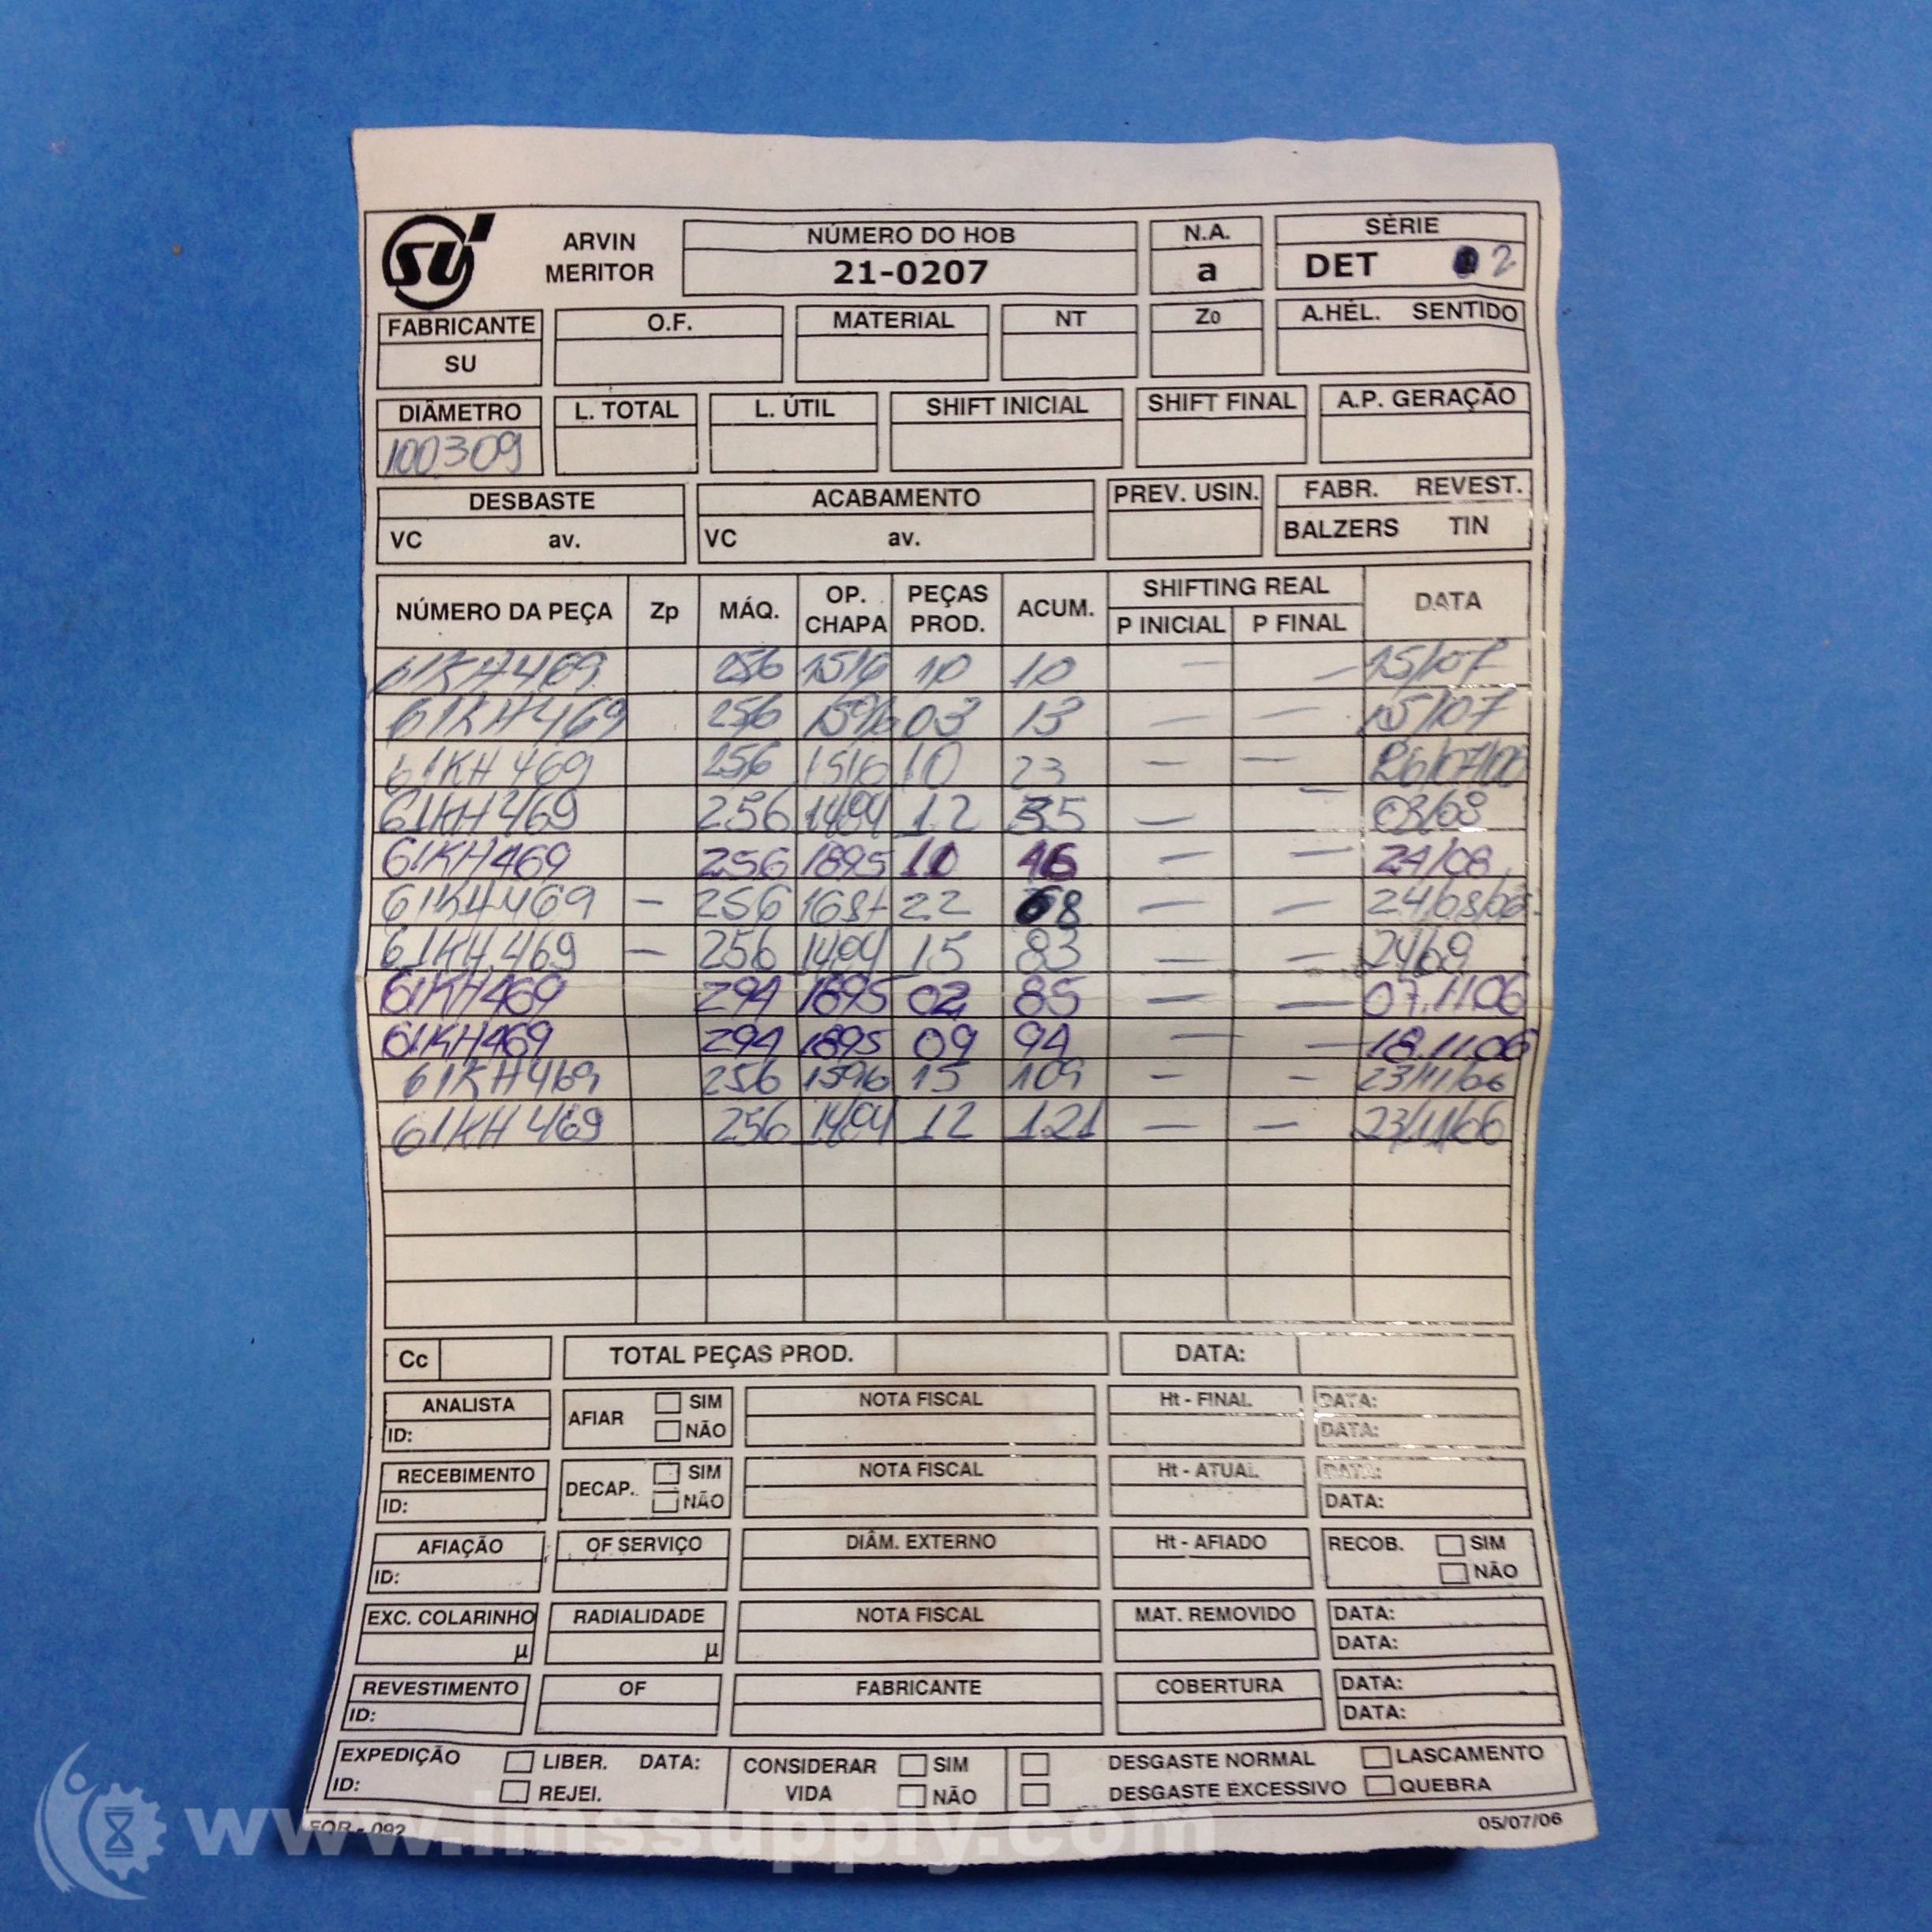 SU ARVIN MERITOR NÚMERO DO HOB 21-0207 N.A. a SÉRIE DET 2
FABRICANTE SU O.F. MATERIAL NT Zo A.HÉL. SENTIDO
DIÂMETRO 100309 L. TOTAL L. ÚTIL SHIFT INICIAL SHIFT FINAL A.P. GERAÇÃO
DESBASTE ACABAMENTO PREV. USIN. FABR. REVEST.
VC av. VC av. BALZERS TIN
NÚMERO DA PEÇA Zp MÁQ. OP. CHAPA PEÇAS PROD. ACUM. SHIFTING REAL P INICIAL P FINAL DATA
61KH469 256 10 10 — — 15/07
61KH469 256 1596 03 13 — — 15/07
61KH469 256 10 23 — —
61KH469 256 1494 12 35 — —
61KH469 256 1895 46 — — 24/08
61KH469 — 256 22 68 — — 24/08/06
61KH469 — 256 1494 15 83 — —
61KH469 294 1895 02 85 — — 07.11.06
61KH469 294 1895 09 94 — — 18.11.06
61KH469 256 1596 15 109 — — 23/11/06
61KH469 256 1494 12 121 — — 23/11/06
Cc TOTAL PEÇAS PROD. DATA:
ANALISTA ID: AFIAR SIM NÃO NOTA FISCAL Ht - FINAL DATA: DATA:
RECEBIMENTO ID: DECAP. SIM NÃO NOTA FISCAL Ht - ATUAL DATA: DATA:
AFIAÇÃO ID: OF SERVIÇO DIÂM. EXTERNO Ht - AFIADO RECOB. SIM NÃO
EXC. COLARINHO µ RADIALIDADE µ NOTA FISCAL MAT. REMOVIDO DATA: DATA:
REVESTIMENTO ID: OF FABRICANTE COBERTURA DATA: DATA:
EXPEDIÇÃO LIBER. DATA: CONSIDERAR SIM DESGASTE NORMAL LASCAMENTO
ID: REJEI. VIDA NÃO DESGASTE EXCESSIVO QUEBRA
FOR - 092 05/07/06
www.imssupply.com